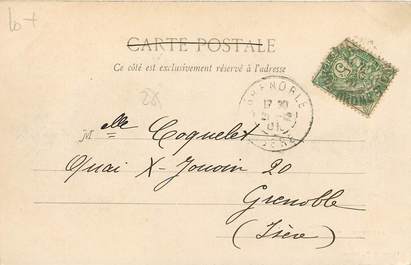 CARTE POSTALE
Ce côté est exclusivement réservé à l'adresse
GRENOBLE
ISÈRE
Melle Coquelet
Quai X-Jouvin 20
Grenoble
(Isère)